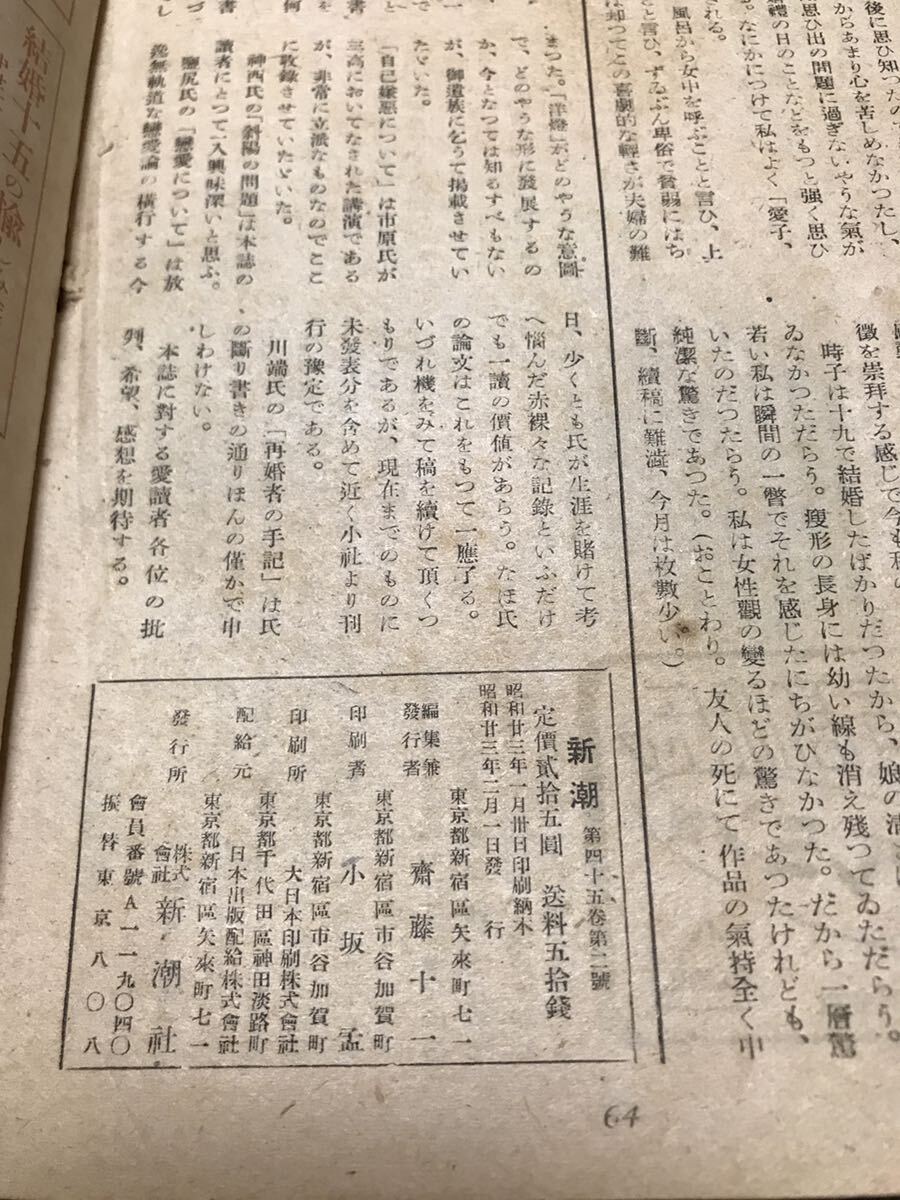 後に思ひ知つたので
からあまり心を苦しめなかつたし、
思ひ出の問題に過ぎないやうな氣が
婚禮の日のことなどをもつと強く思ひ
る。なにかにつけて私はよく「愛子、
される。
風呂から女中を呼ぶことと言ひ、上
と言ひ、ずゐぶん卑俗で貧弱にはち
は却つてこの喜劇的な輕さが夫婦の難
徴を崇拜する感じで今も私の
時子は十九で結婚したばかりだつたから、娘の清
ゐなかつただらう。瘦形の長身には幼い線も消え殘つてゐただらう。
若い私は瞬間の一瞥でそれを感じたにちがひなかつた。だから一層驚
いたのだつたらう。私は女性觀の變るほどの驚きであつたけれども、
純潔な驚きであつた。(おことわり。友人の死にて作品の氣持全く中
斷、續稿に難澁、今月は枚數少い。)
まつた。「洋燈」がどのやうな意圖
で、どのやうな形に發展するの
か、今となつては知るすべもない
が、御遺族にをうて掲載させてい
たゞいた。
「自己嫌惡について」は市原氏が
三高においてなされた講演である
が、非常に立派なものなのでここ
に收錄させていたゞいた。
神西氏の「斜陽の問題」は本誌の
讀者にとつて一入興味深いと思ふ。
鹽尻氏の「戀愛について」は放
逸無軌道な戀愛論の横行する今
日、少くとも氏が生涯を賭けて考
へ惱んだ赤裸々な記錄といふだけ
でも一讀の價値があらう。なほ氏
の論文はこれをもつて一應了る。
いづれ機をみて稿を續けて頂くつ
もりであるが、現在までのものに
未發表分を含めて近く小社より刊
行の豫定である。
川端氏の「再婚者の手記」は氏
の斷り書きの通りほんの僅かで申
しわけない。
本誌に對する愛讀者各位の批
判、希望、感想を期待する。
新潮 第四十五卷第二號
定價貳拾五圓 送料五拾錢
昭和廿三年一月卅日印刷納本
昭和廿三年二月一日發行
東京都新宿區矢來町七一
編集兼發行者 齋藤十一
東京都新宿區市谷加賀町
印刷者 小坂孟
東京都新宿區市谷加賀町
印刷所 大日本印刷株式會社
東京都千代田區神田淡路町
配給元 日本出版配給株式會社
東京都新宿區矢來町七一
發行所 株式會社 新潮社
會員番號A一一九〇四〇
振替東京八〇八
64
結婚十五の愉しみ